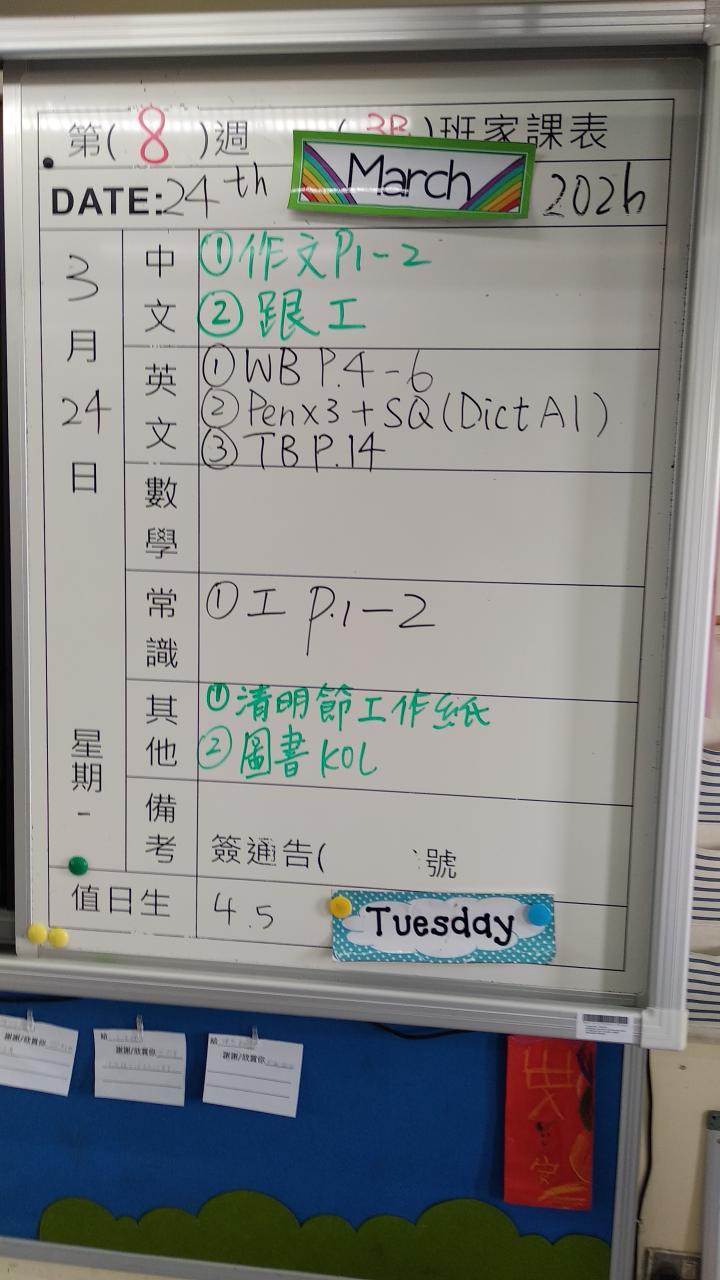 第( 8 )週 ( 3B )班家課表
DATE: 24th March 2026
3月24日
星期一
中文
①作文P1-2
②跟工
英文
①WB P.4-6
②Penx3+SQ(Dict A1)
③TB P.14
數學
常識
①工 p.1-2
其他
①清明節工作紙
②圖書KOL
備考
簽通告( 號
值日生
4.5
Tuesday
謝謝/欣賞你
給
謝謝/欣賞你
給
謝謝/欣賞你